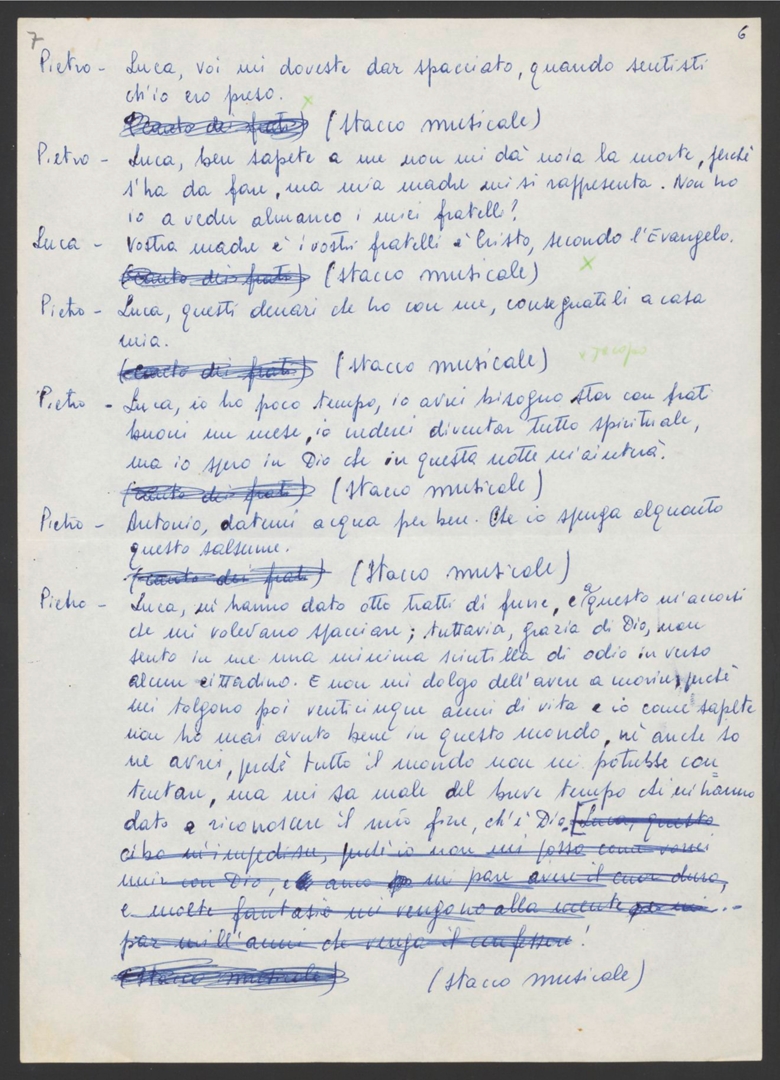 7
6
Pietro - Luca, voi mi doveste dar spacciato, quando sentisti
ch'io ero preso.
(Canto dei frati) (stacco musicale)
Pietro - Luca, ben sapete a me non mi dà noia la morte, perché
s'ha da fare, ma mia madre mi si rappresenta. Non ho
io a veder almanco i miei fratelli?
Luca - Vostra madre e i vostri fratelli è Cristo, secondo l'Evangelo.
(Canto dei frati) (stacco musicale)
Pietro - Luca, questi denari che ho con me, consegnateli a casa
mia.
(canto dei frati) (stacco musicale)
Pietro - Luca, io ho poco tempo, io avrei bisogno star con frati
buoni un mese, io crederei diventar tutto spirituale,
ma io spero in Dio che in questa notte m'aiuterà.
(canto dei frati) (stacco musicale)
Pietro - Antonio, datemi acqua per bere. Che io spenga alquanto
questo salsume.
(canto dei frati) (stacco musicale)
Pietro - Luca, mi hanno dato otto tratti di fune, e a questo m'accorsi
che mi volevano spacciare; tuttavia, grazia di Dio, non
sento in me una minima scintilla di odio in verso
alcun cittadino. E non mi dolgo dell'avere a morire, perché
mi tolgono poi venticinque anni di vita e io come sapete
non ho mai avuto bene in questo mondo, nè anche so
ne avrei, perchè tutto il mondo non mi potrebbe con
tentare, ma mi sa male del breve tempo che mi hanno
dato a riconoscere il mio fine, ch'è Dio. [Luca, questo
cibo m'impedisce, perch'io non mi posso come vorrei
unir con Dio, e anco mi pare avere il cuor duro,
e molte fantasie mi vengono alla mente e mi...
par mill'anni che venga il confessore!
(stacco musicale) (stacco musicale)